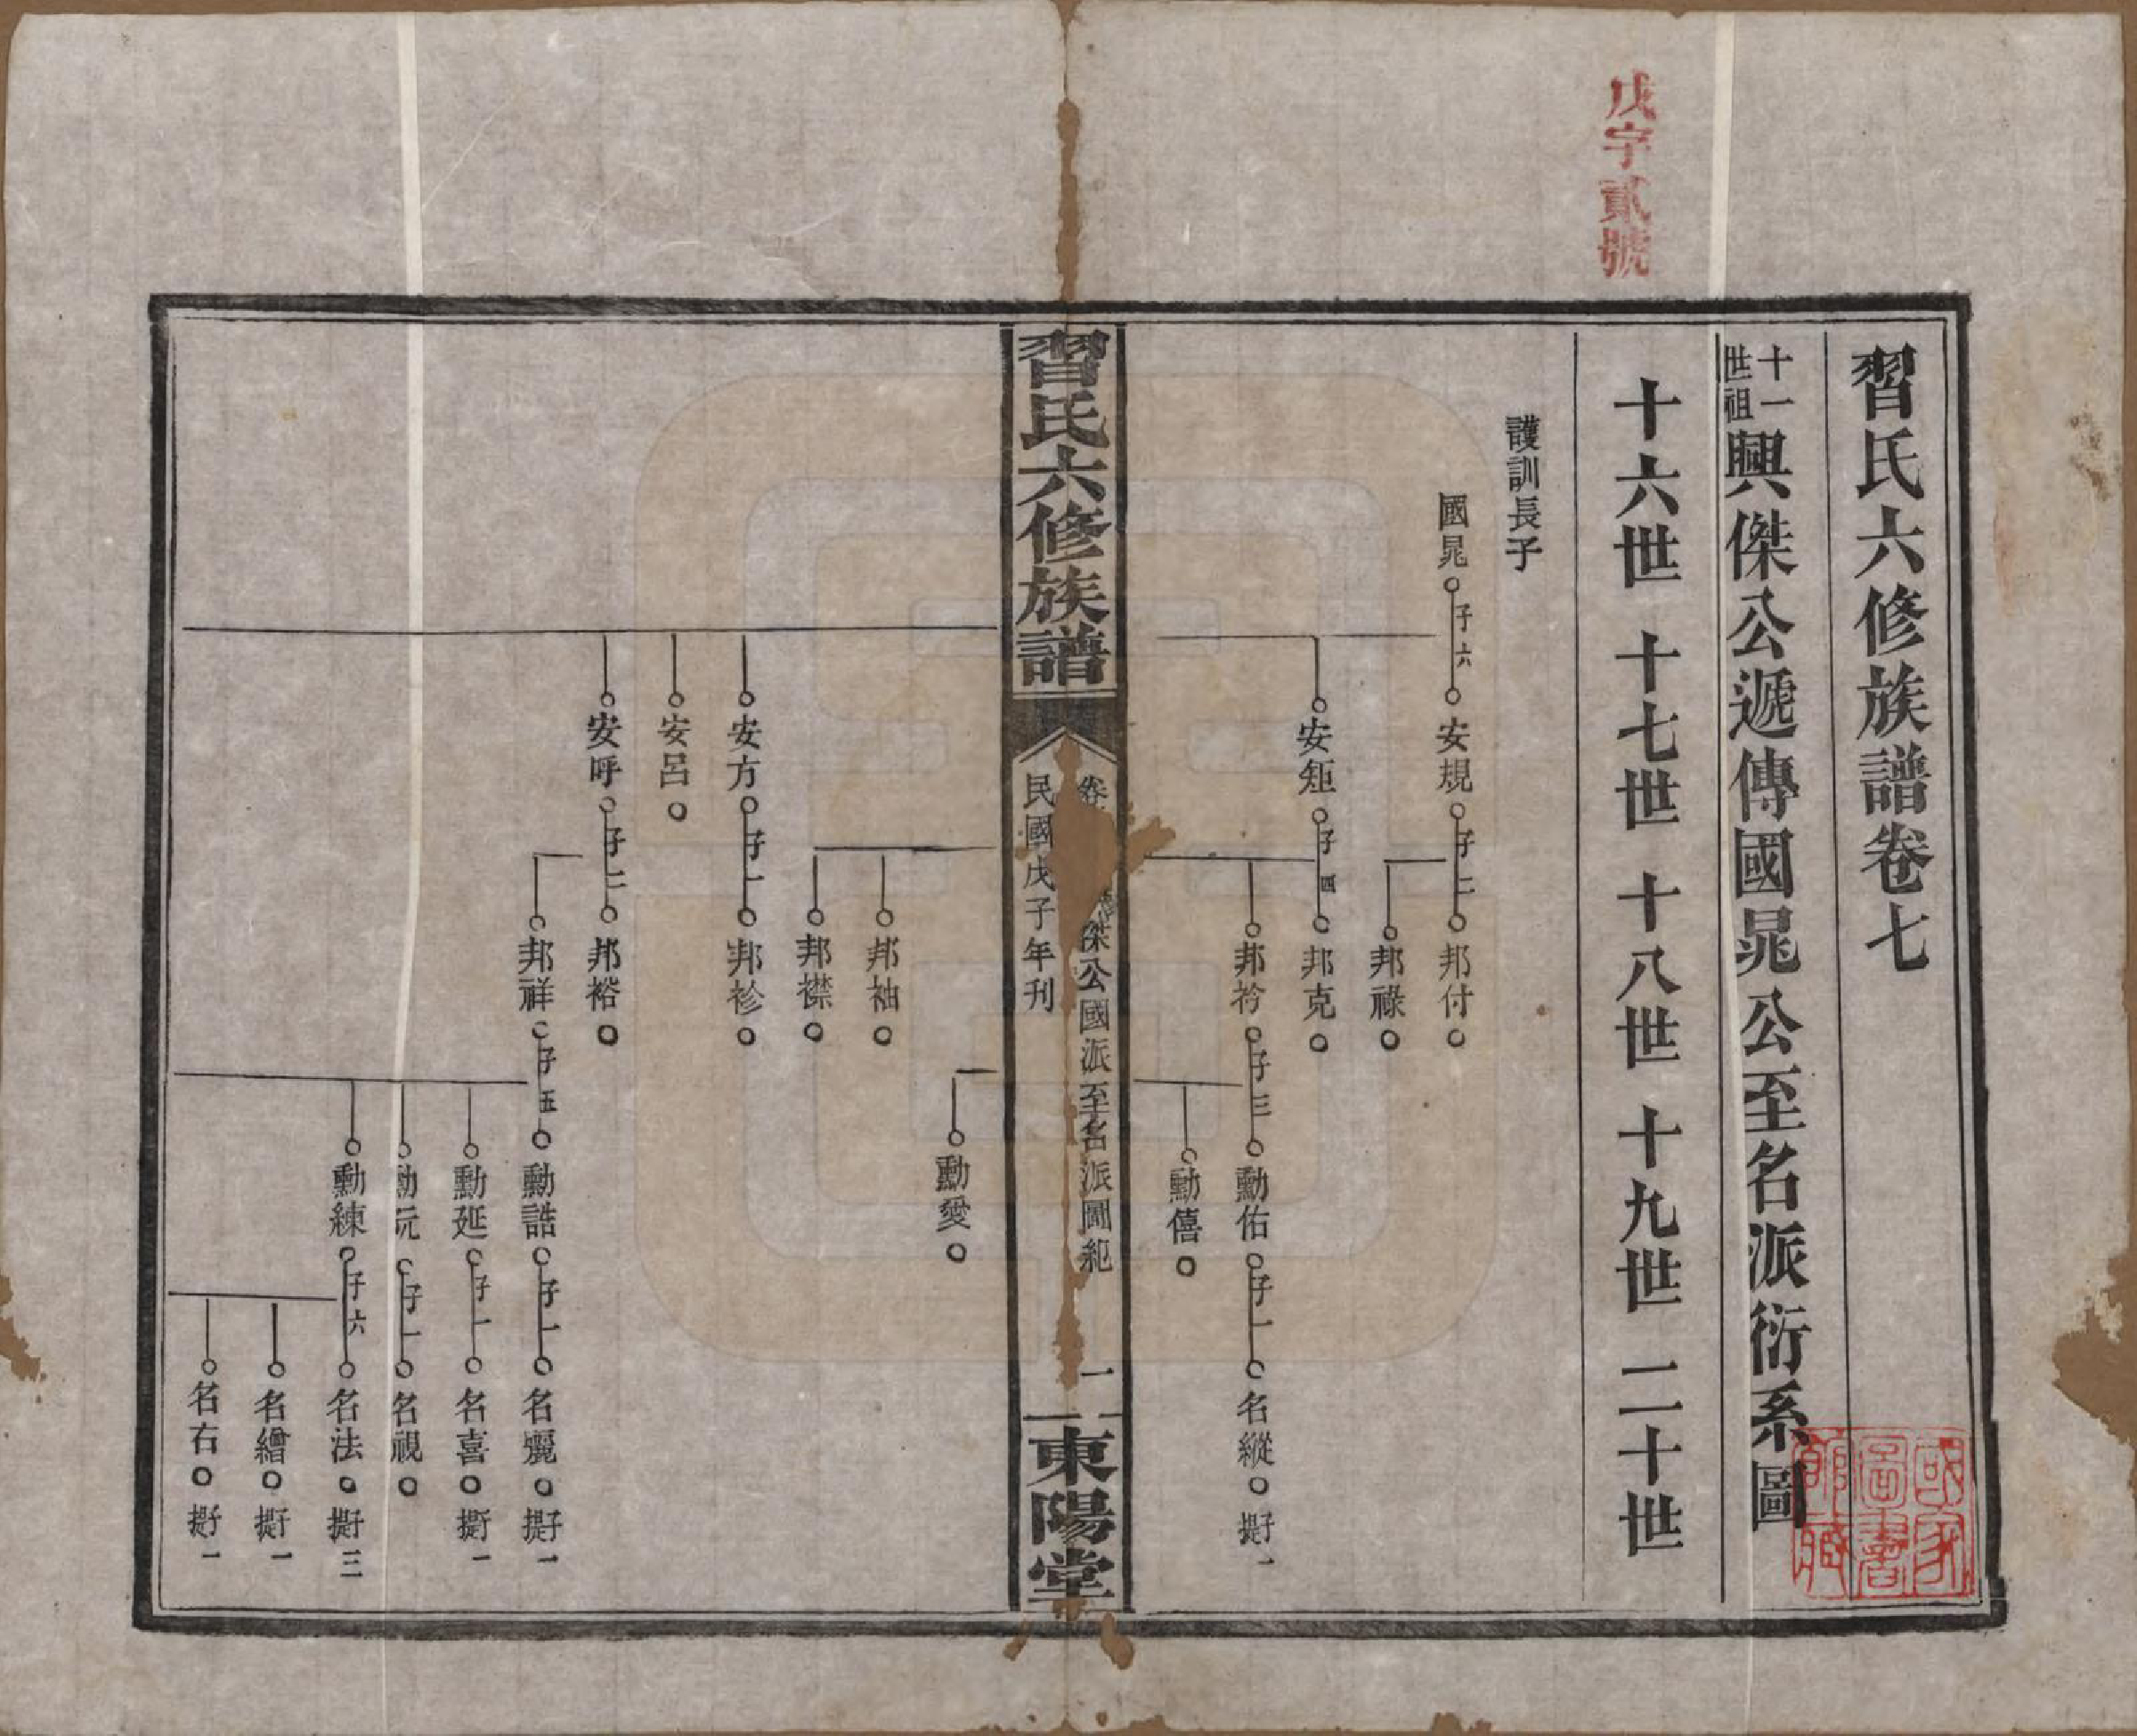 戊字貳號
習氏六修族譜卷七
十一世祖興傑公遞傳國晁公至名派衍系圖
十六世 十七世 十八世 十九世 二十世
護訓長子
國晁 子六 安規 子二 邦付
邦祿
安矩 子四 邦克
邦衿 子三 勳佑 子一 名縱 撫子一
勳僖
習氏六修族譜
卷 傑公國派至名派圖 一
民國戊子年刊
東陽堂
勳愛
邦袖
邦襟
安方 子一 邦袗
安呂
安呼 子二 邦裕
邦祥 子五 勳誥 子一 名驪 子一
勳延 子一 名喜 子一
勳沅 子一 名視
勳練 子六 名法 子三
名繪 子一
名右 子一
國家圖書館藏